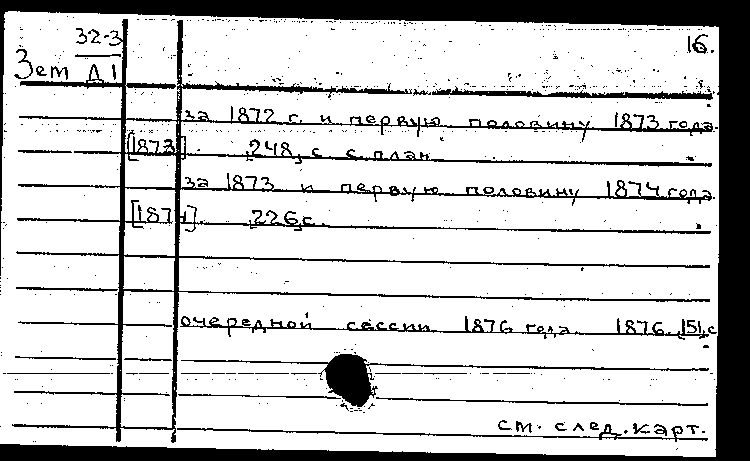 32-3
16.
Зет Д1
за 1872 г. и первую половину 1873 года.
[1873]. 248, с. с план.
за 1873 и первую половину 1874 года
[1874]. 226, с.
очередной сессии 1876 года. 1876. 151, с
см. след. карт.